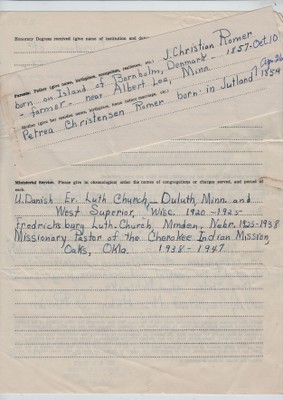 Honorary Degrees received (give name of institution and
Parents: Father (give name, birthplace, occupation, residence, etc.) J. Christian Romer
born on Island of Bornholm, Denmark - 1857-Oct. 10
- farmer - near Albert Lea, Minn.
Mother (give her maiden name, birthplace,
Petrea Christensen Romer born: in Jutland Apr 26
1854
Ministerial Service. Please give in chronological order the names of congregations or charges served, and period of
each.
U. Danish Ev. Luth Church, Duluth, Minn and
West Superior, Wisc. 1920-1925
Fredricksburg Luth. Church, Minden, Nebr. 1925-1938
Missionary Pastor of the Cherokee Indian Mission,
Oaks, Okla. 1938-1947